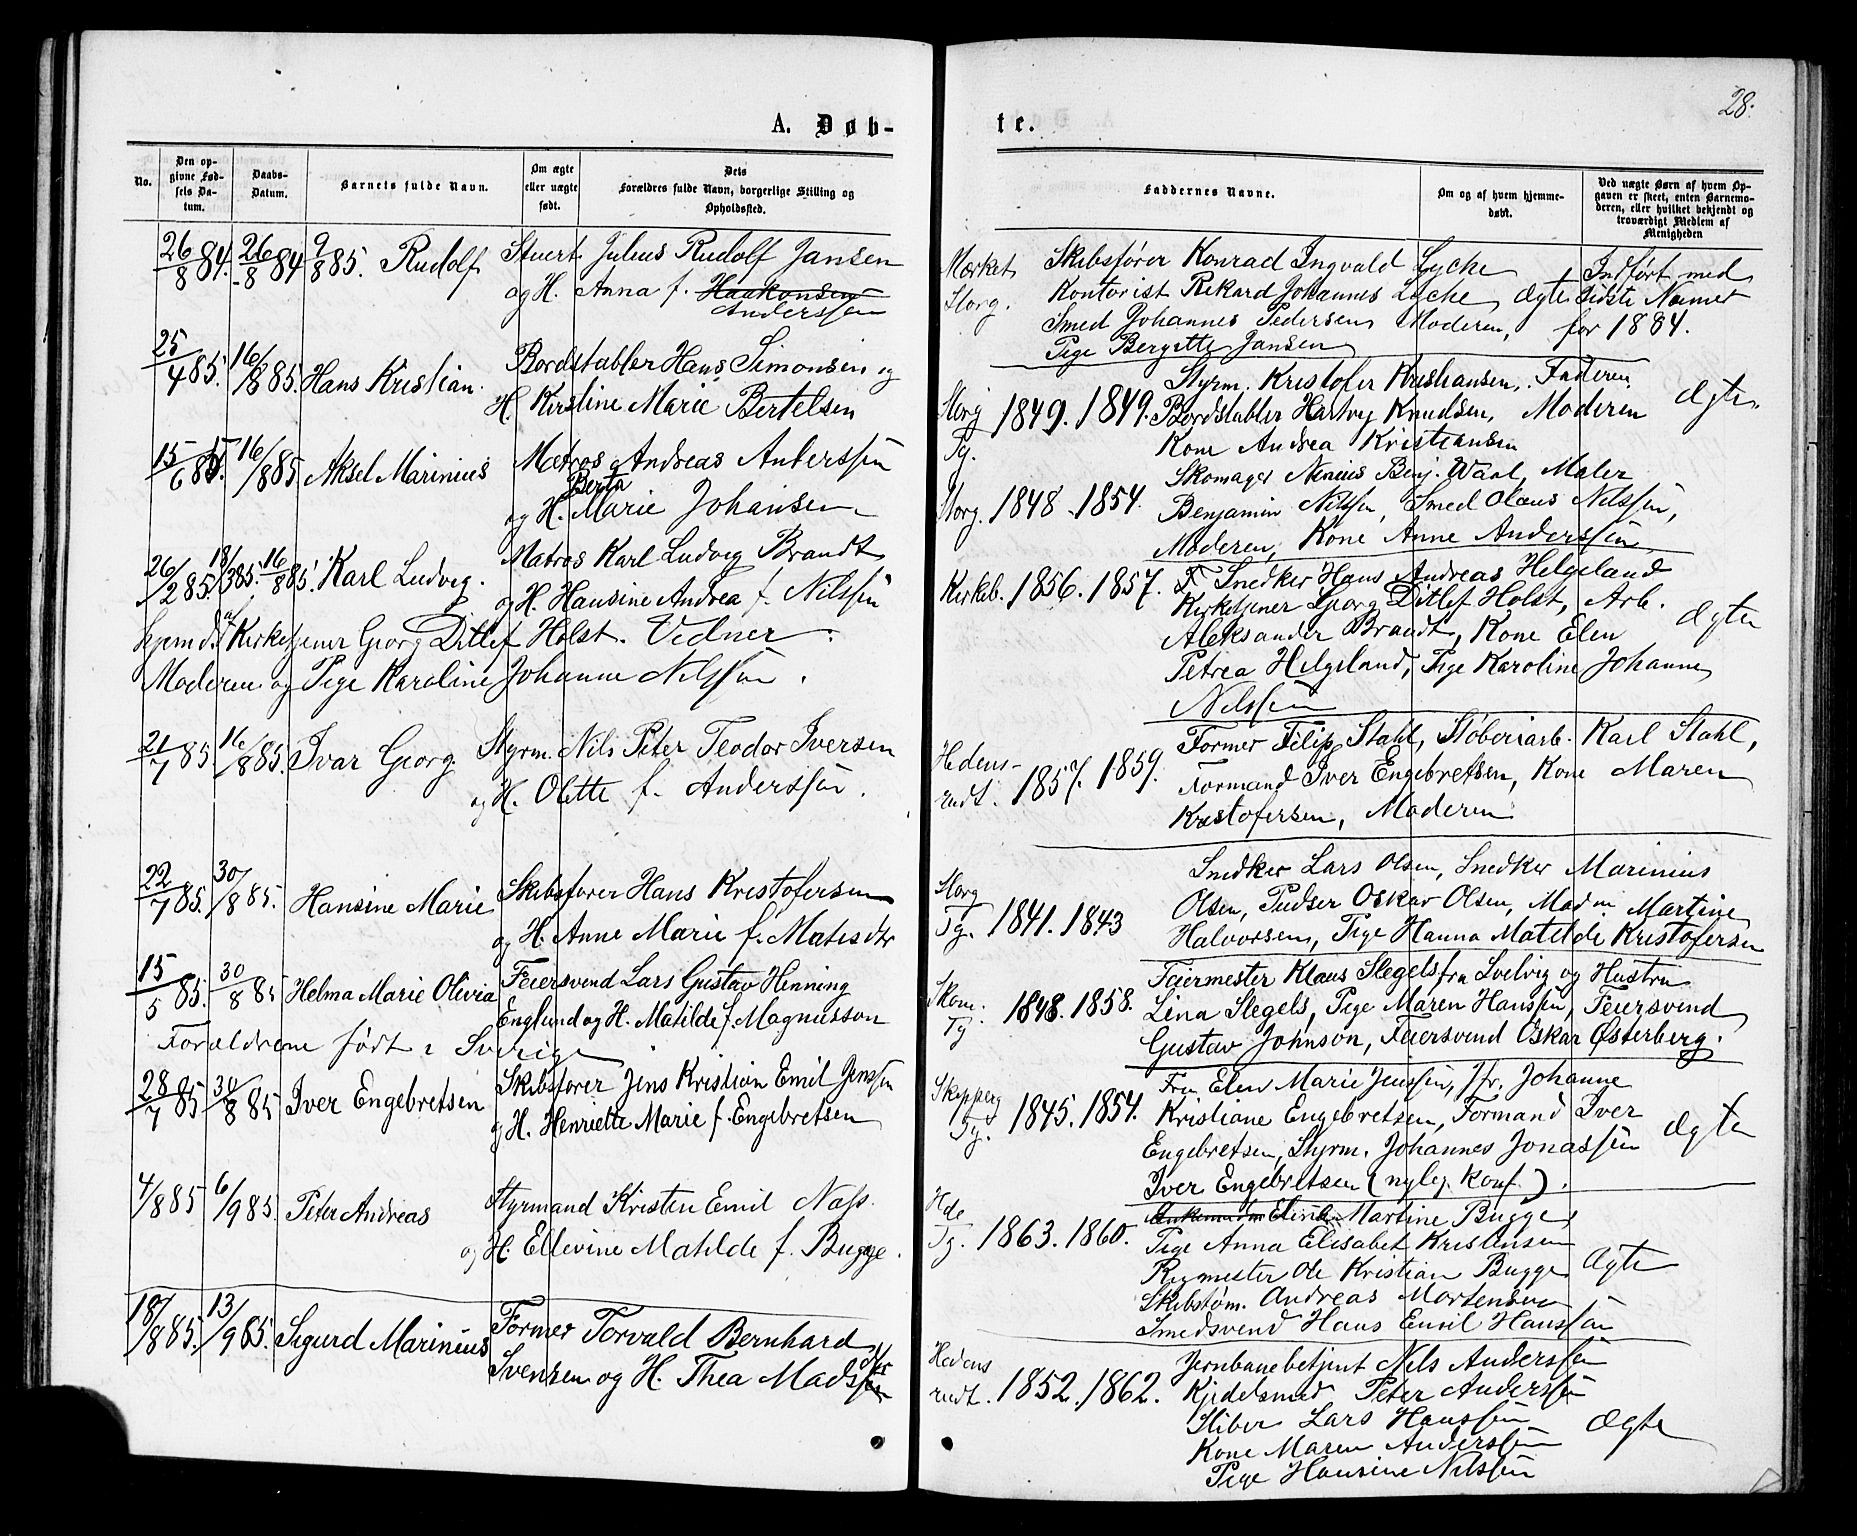 28.
A. Døb-
te.
No.
Den op-
givne Fød-
sels Da-
tum.
Daabs-
Datum.
Barnets fulde Navn.
Om ægte
eller uægte
født.
Dets
Forældres fulde Navn, borgerlige Stilling og
Opholdssted.
Faddernes Navne.
Om og af hvem hjemme-
døbt.
Ved uægte Børn af hvem Op-
gaven er skeet, enten Barnemo-
deren, eller hvilket bekjendt og
troværdigt Medlem af
Menigheden
26/8 84. 26/8 84 9/8 85. Rudolf Stuert Julius Rudolf Jansen
og H. Anna f. Haakonsen
Anderssen
Mærket
Storg.
Skibsfører Konrad Ingvald Lyche
Kontorist Rikard Johannes Lyche, ægte
Smed Johannes Pedersen, Moderen,
Pige Bergitte Jansen
Indført med
sidste Numer
for 1884.
25/4 85. 16/8 85. Hans Kristian. Bordstabler Hans Simonsen og
H. Kirstine Marie Bertelsen
Storg
Tg. 1849. 1849.
Styrm. Kristofer Kristiansen, Faderen
Bordstabler Hartvig Knudsen, Moderen
Kone Andrea Kristiansen
ægte
15/6 85. 16/8 85. Aksel Marinius Matros Andreas Anderssen
Berta
og H. Marie Johansen
Storg. 1848 - 1854.
Skomager Benj. Maler
Benjamin Nilssen, Smed Olaus Nilssen,
Moderen, Kone Anne Anderssen
26/2 85. 18/3 85. 16/8 85. Karl Ludvig. Matros Karl Ludvig Brandt
og H. Hansine Andrea f. Nilssen
hjemd. af Kirketjener Georg Ditlef Holst. Vidner:
Moderen og Pige Karoline Johanne Nilssen.
Kirkeb. 1856. 1857.
F. Snedker Hans Andreas Helgeland
Kirketjener Georg Ditlef Holst, Arb.
Aleksander Brandt, Kone Elen
Petrea Helgeland, Pige Karoline Johanne
Nilssen
ægte
21/7 85. 16/8 85. Ivar Georg. Styrm. Nils Peter Teodor Iversen
og H. Olette f. Anderssen.
Hedens-
rudt. 1857. 1859.
Former Filip Stahl, Støberiarb. Karl Stahl,
Formand Iver Engebretsen, Kone Maren
Kristofersen, Moderen
22/7 85. 30/8 85. Hansine Marie Skibsfører Hans Kristofersen
og H. Anne Marie f. Matisdtr
Storg
Tg. 1841. 1843
Snedker Lars Olsen, Snedker Marinius
Olsen, Pudser Oskar Olsen, Madm. Martine
Halvorsen, Pige Hanna Matilde Kristofersen
15/5 85. 30/8 85 Helma Marie Olivia Feiersvend Lars Gustav Henning
Englund og H. Matilde f. Magnusson
Forældrene født i Sverige
Skom.
Tg 1848. 1858.
Feiermester Klaus Slegels fra Svelvig og Hustru
Lina Slegels, Pige Maren Hanssen, Feiersvend
Gustav Johnson, Feiersvend Oskar Østerberg.
28/7 85 30/8 85 Iver Engebretsen Skibsfører Jens Kristian Emil Jenssen
og H. Henriette Marie f. Engebretsen
Skipperg
Tg. 1845. 1854.
Fru Elen Marie Jenssen, Jfr. Johanne
Kristiane Engebretsen, Formand Iver
Engebretsen, Styrm. Johannes Jonassen
Iver Engebretsen (nylig konf.).
ægte
4/8 85 6/9 85. Peter Andreas Styrmand Kirsten Emil Næss
og H. Ellevine Matilde f. Bugge.
Hde
Tg. 1863. 1860.
Enkemadm Martine Bugge,
Pige Anna Elisabet Kristensen
Rigmester Ole Kristian Bugge
Skibstøm. Andreas Mortensen
Smedsvend Hans Emil Hanssen
ægte
18/8 85. 13/9 85. Sigurd Marinius Former Torvald Bernhard
Svensen og H. Thea Madssen
Hedens
rudt. 1852. 1862.
Jernbanebetjent Nils Anderssen
Kjedelsmed Peter Anderssen
Sliber Lars Hanssen
Kone Maren Anderssen
Pige Hansine Nilssen
ægte